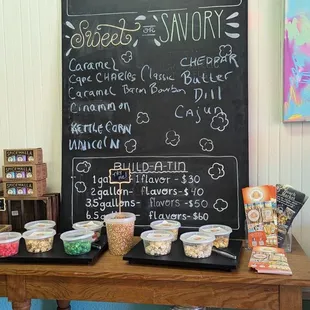 Sweet and SAVORY
Caramel
CHEDDAR
Cape CHARLES Classic Butter
Caramel Baron Bourbon Dill
Cinnamon
Cajun
KETTLE CORN
UNICORN
BUILD-A-TIN
1 gallon 1 flavor - $30
2 gallons flavors - $40
3.5 gallons flavors - $50
6.5 gallons flavors - $60